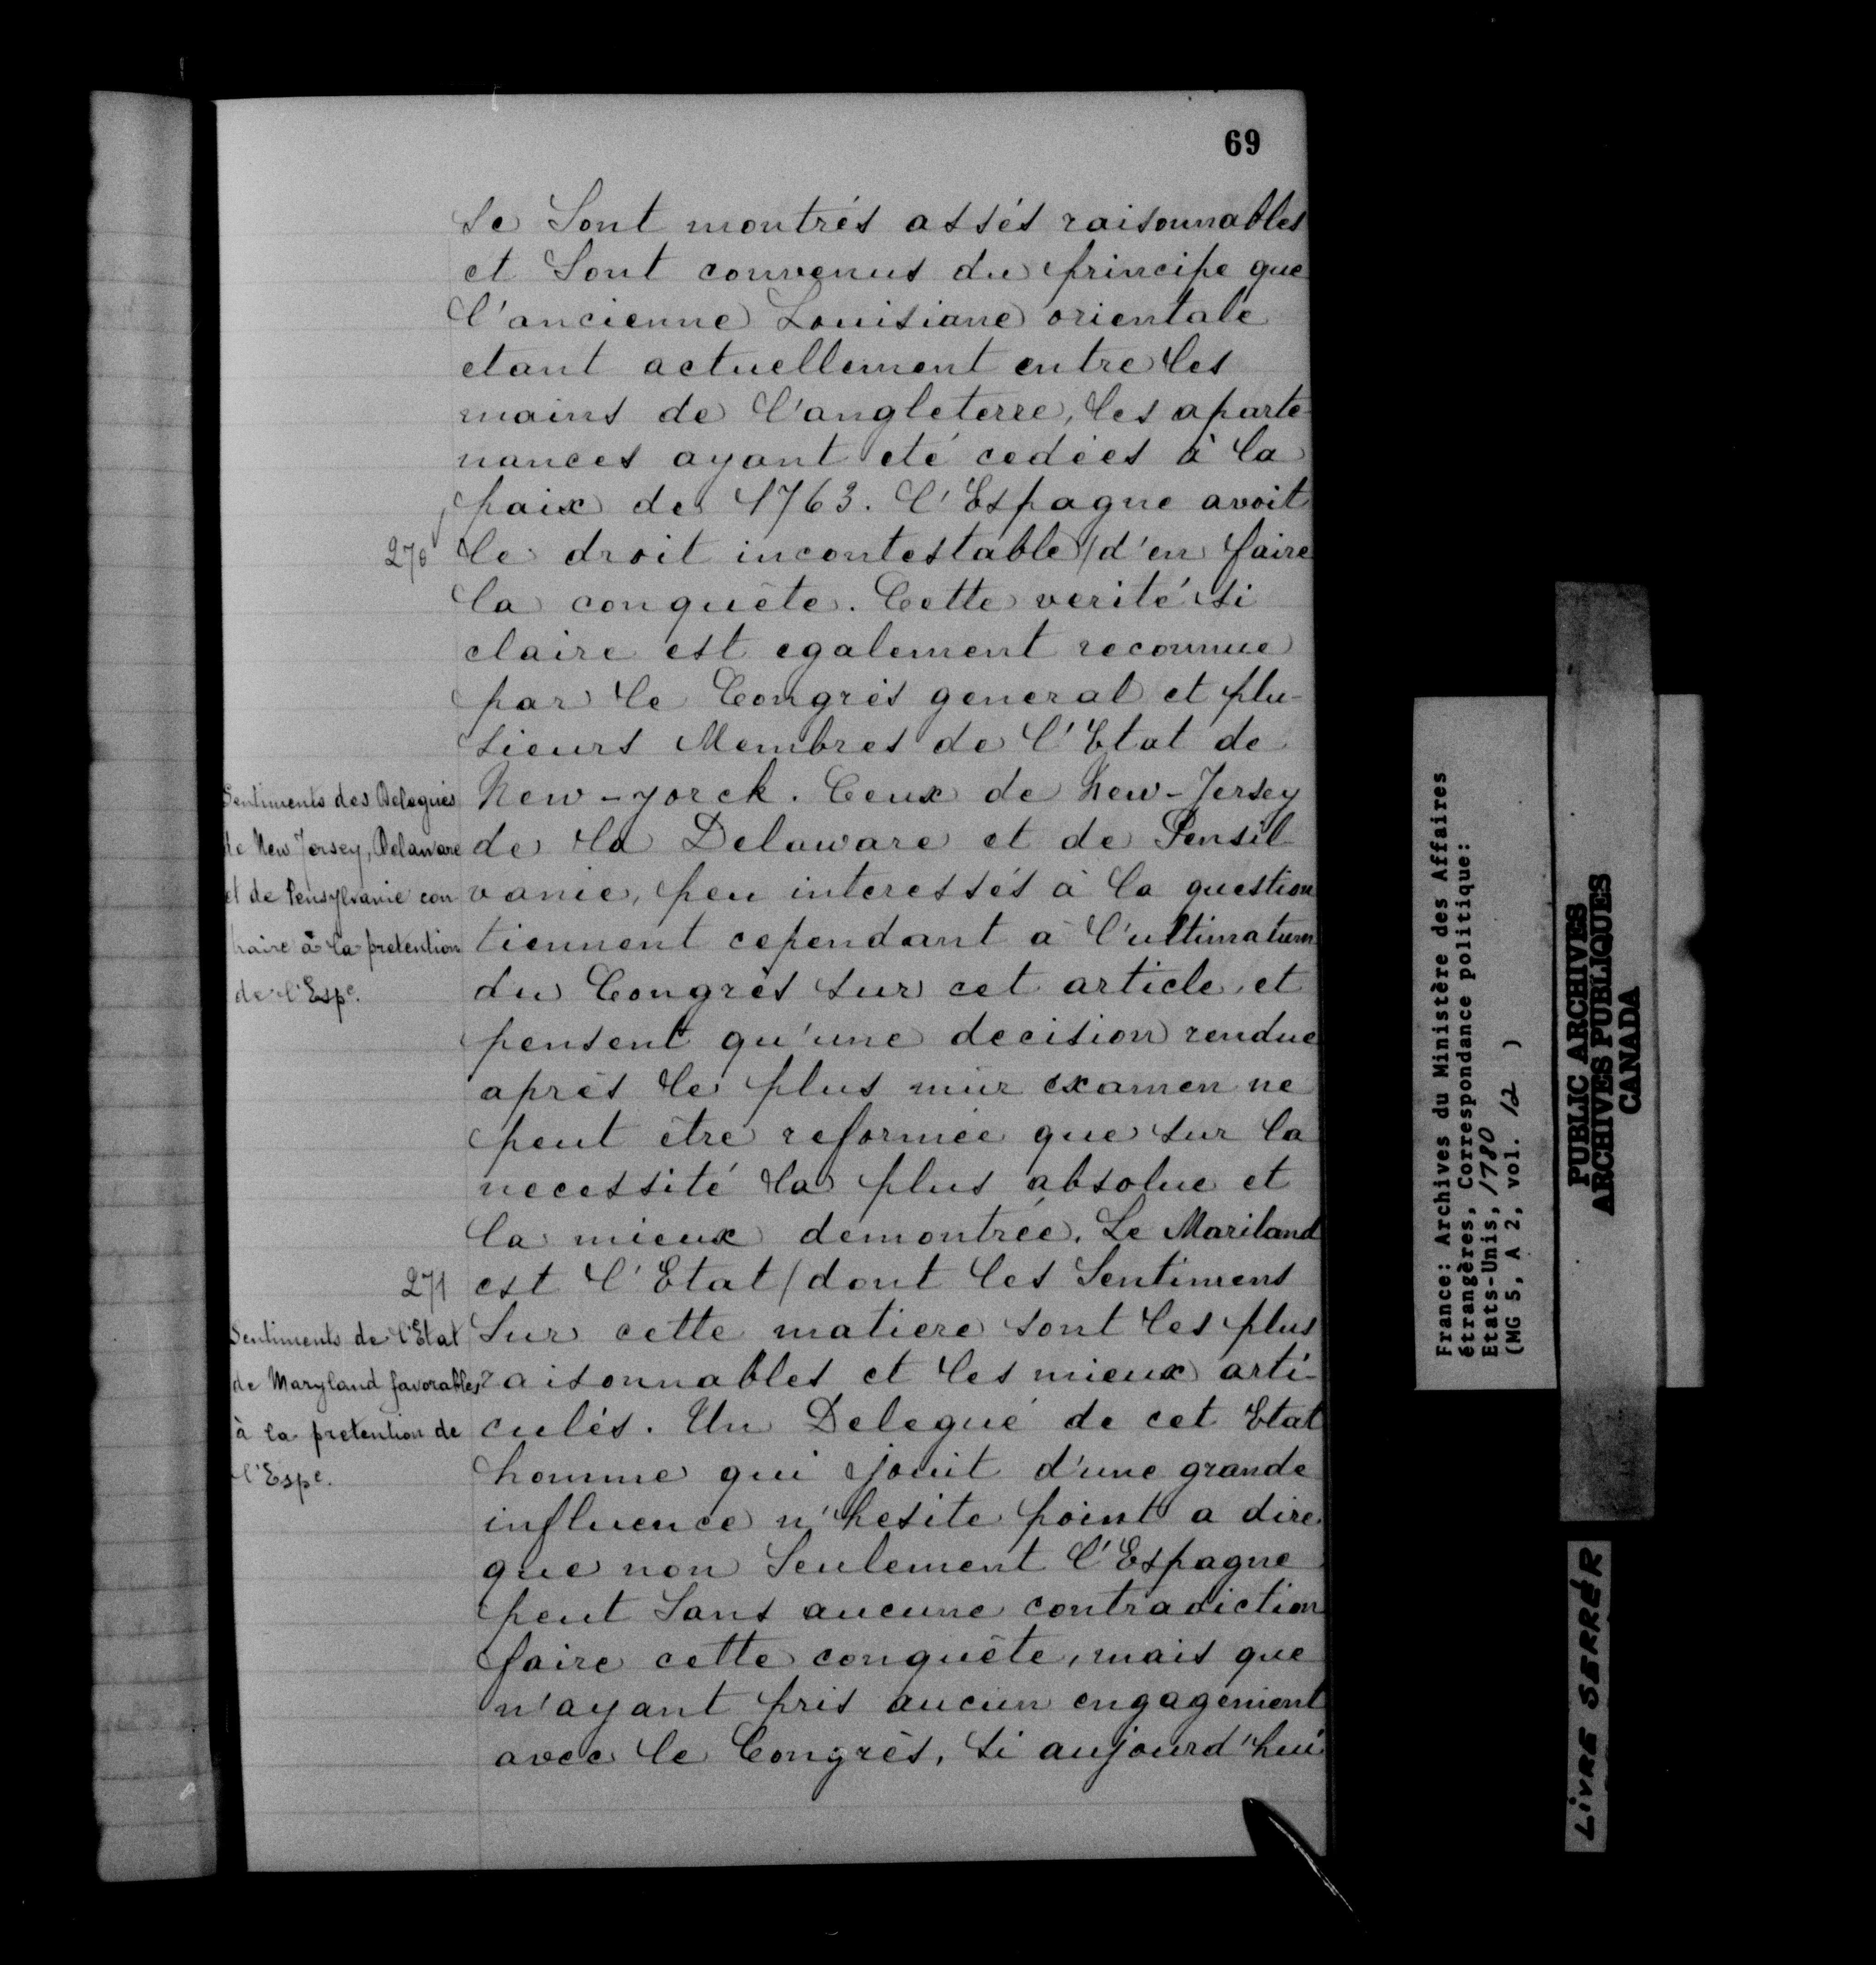 69
se sont montrés assés raisonnables
et sont convenus du principe que
l'ancienne Louisiane orientale
etant actuellement entre les
mains de l'angleterre, les aparte-
nances ayant eté cedées à la
paix de 1763. l'Espagne avoit
270 le droit incontestable / d'en faire
la conquête. Cette verité si
claire est egalement reconnue
par le Congrès general et plu-
sieurs Membres de l'Etat de
New-yorck. Ceux de New-Jersey
de la Delaware et de Pensil-
vanie, peu interessés à la question
tiennent cependant a l'ultimatum
du Congrès sur cet article, et
pensent qu'une decision rendue
après le plus mûr examen ne
peut être reformée que sur la
necessité la plus absolue et
la mieux démontrée. Le Mariland
271 est l'Etat / dont les Sentimens
sur cette matiere sont les plus
raisonnables et les mieux arti-
culés. Un Delegué de cet Etat
homme qui jouit d'une grande
influence n'hesite point a dire
que non seulement l'Espagne
peut sans aucune contradiction
faire cette conquête, mais que
n'ayant pris aucun engagement
avec le Congrès, si aujourd'hui
Sentiments des Delegués
de New Jersey, Delaware
et de Pensylvanie con
traire à la pretention
de l'Espe.
Sentiments de l'Etat
de Maryland favorables
à la pretention de
l'Espe.
France: Archives du Ministère des Affaires
étrangères, Correspondance politique:
Etats-Unis, 1780
(MG 5, A 2, vol. 12 )
PUBLIC ARCHIVES
ARCHIVES PUBLIQUES
CANADA
LIVRE SERRÉR